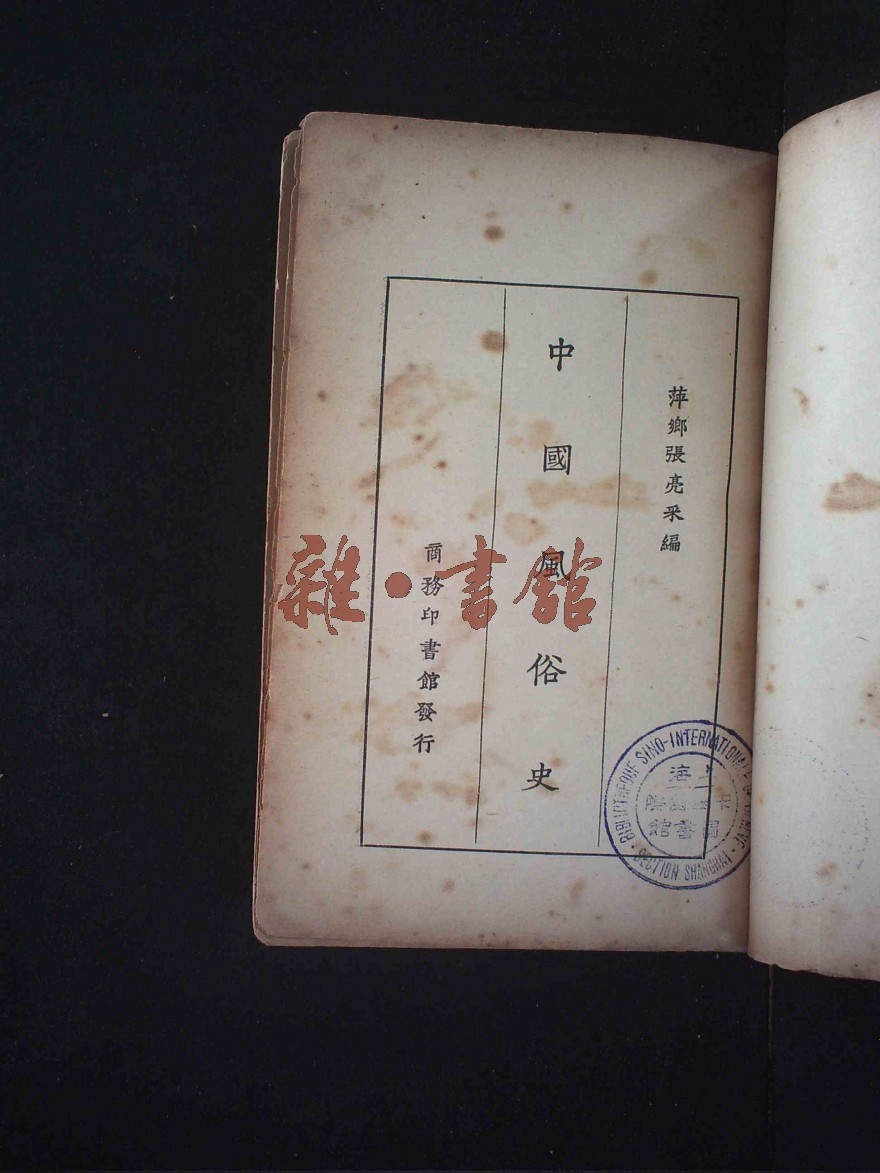 萍鄉張亮采編
中國風俗史
商務印書館發行
雜·書館
BIBLIOTHEQUE SINO-INTERNATIONALE
SECTION SHANGHAI
上海
圖書館